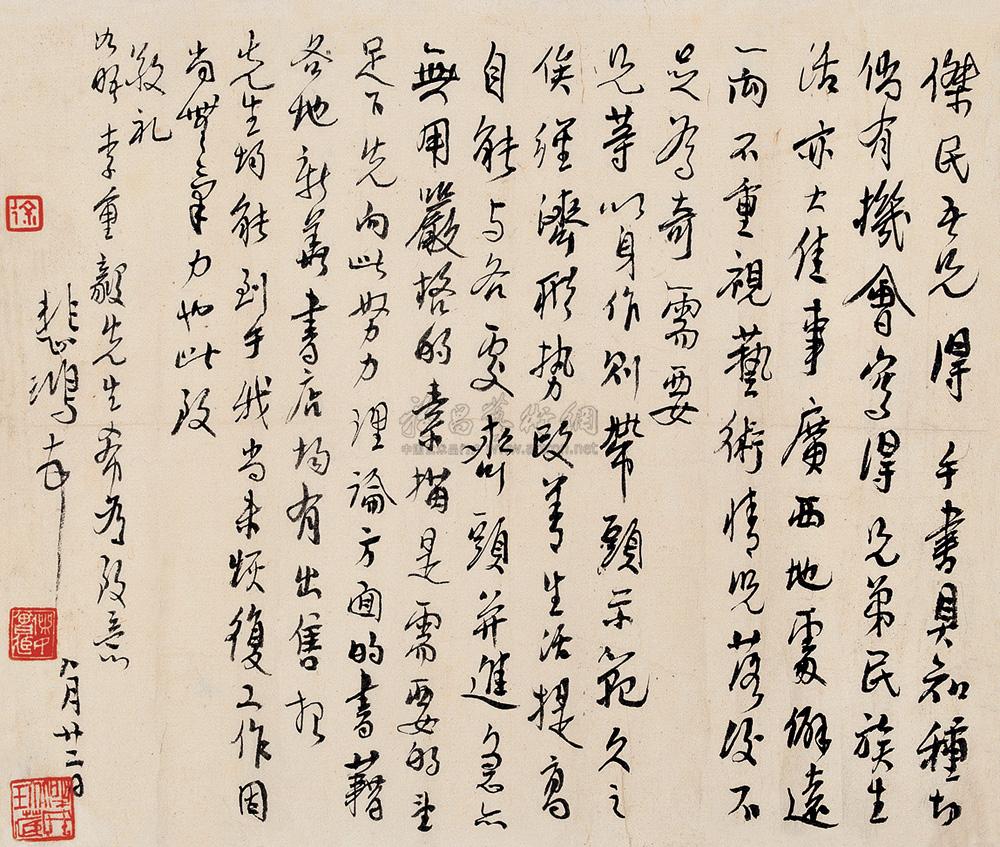 傑民吾兄 得 手書具知種切
倘有機會寫得 兄弟民族生
活亦大佳事 廣西地處僻遠
一向不重視藝術 情況落後不
足為奇 需要
兄等以身作則帶頭示範久之
俟經濟形勢改善生活提高
自能与各處齊頭并進急亦
無用 嚴格的素描是需要的望
足下先向此努力 理論方面的書藉
各地新華書店均有出售想
先生均能到手 我尚未恢復工作因
尚無力也此致
敬礼
李重毅先生希為致意
悲鴻
八月廿二日
徐